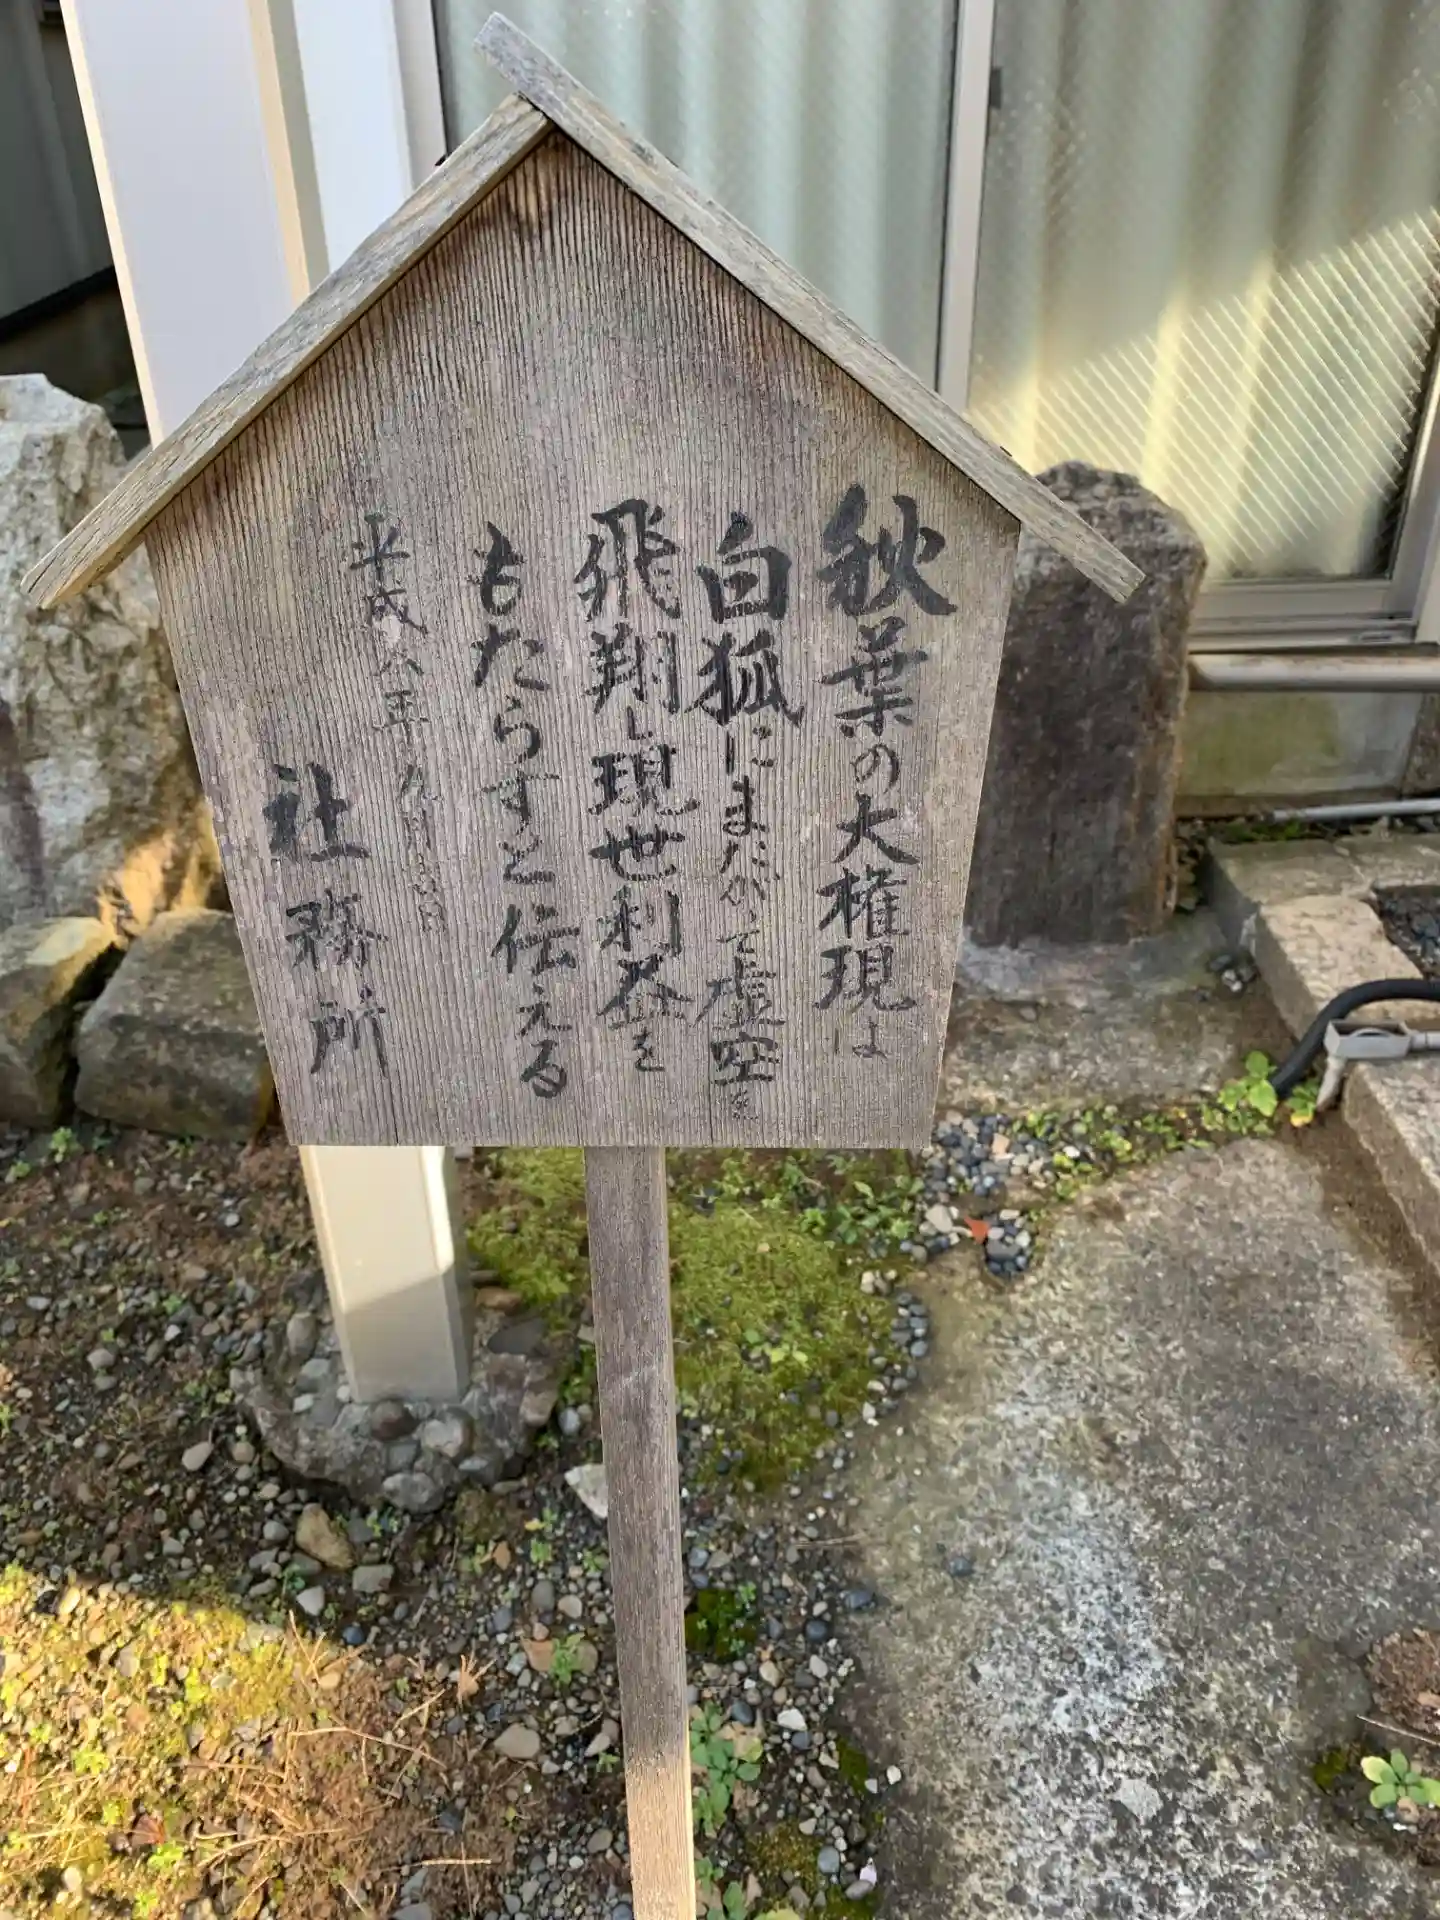 秋葉の大権現は
白狐にまたがて虚空を
飛翔し現世利益を
もたらすと伝える
平成八年
社務所